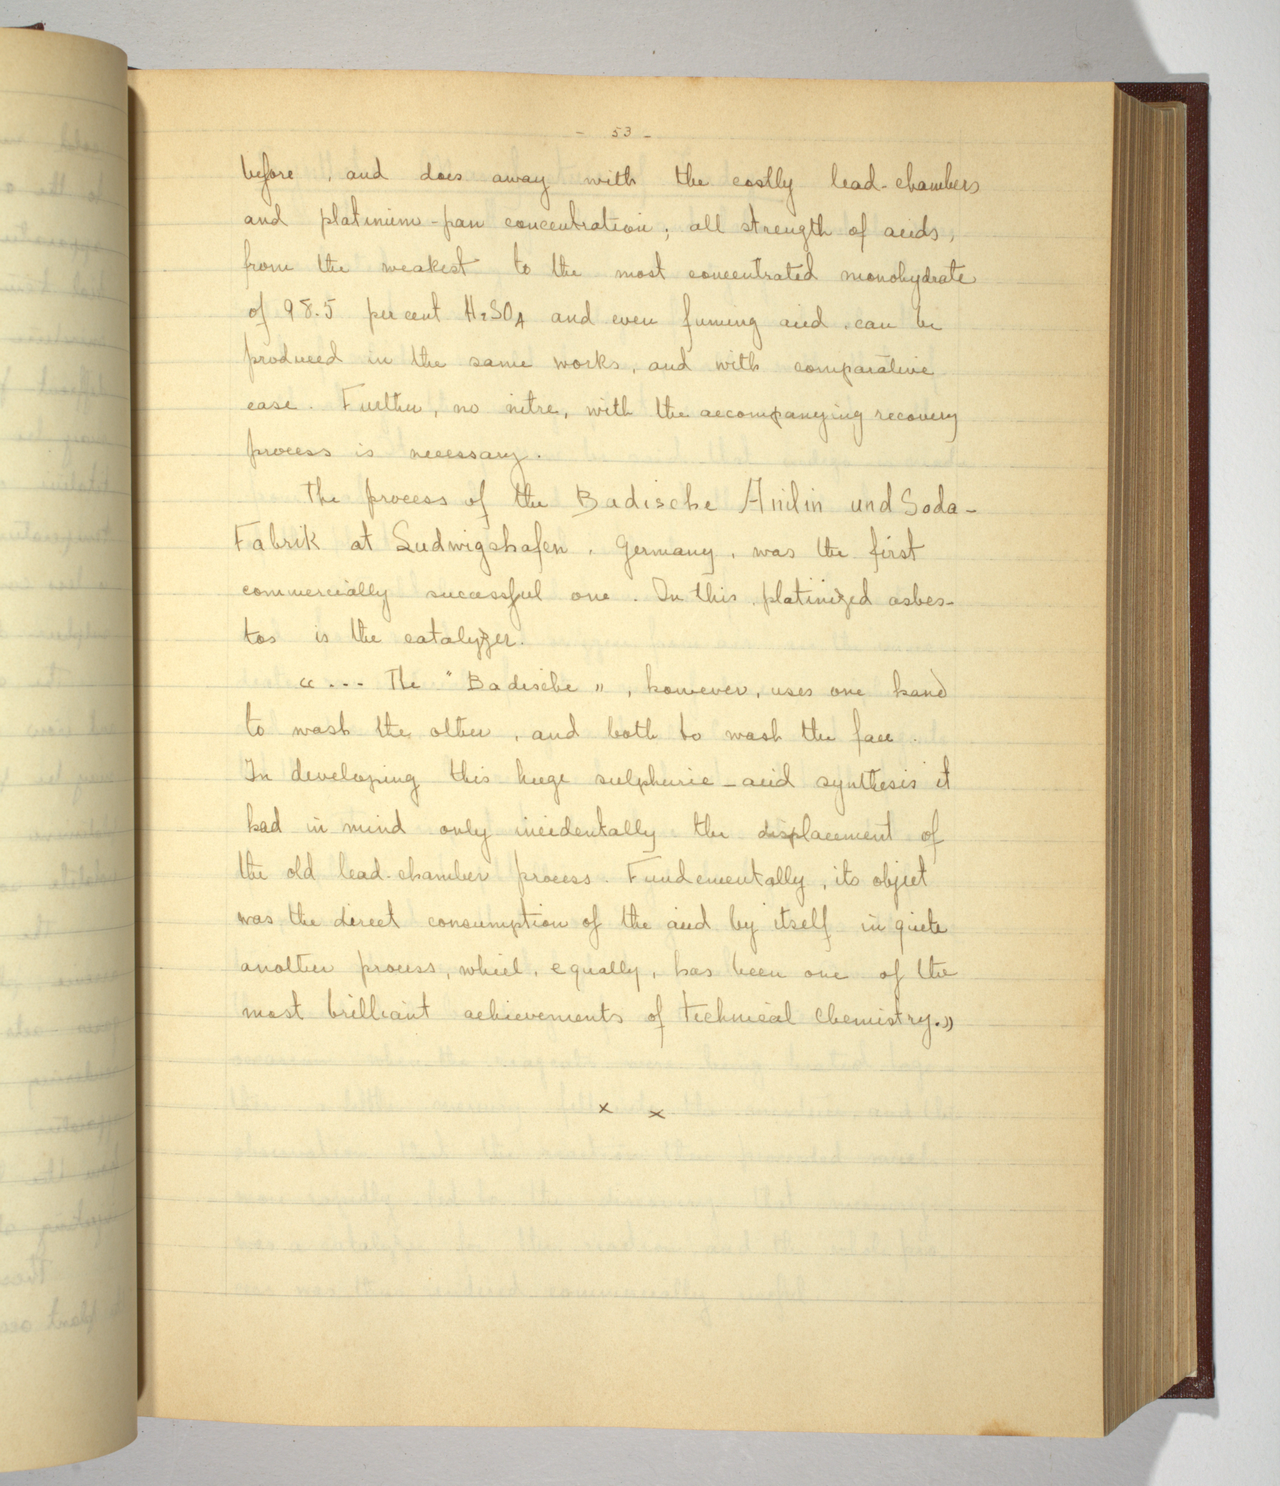 - 53 -
before, and does away with the costly lead-chambers
and platinium-pan concentration; all strength of acids,
from the weakest to the most concentrated monohydrate
of 98.5 per cent H2SO4 and even fuming acid can be
produced in the same works, and with comparative
ease. Further, no nitre, with the accompanying recovery
process is necessary.
The process of the Badische Anilin und Soda-
Fabrik at Ludwigshafen, Germany, was the first
commercially successful one. In this, platinized asbes-
tos is the catalyzer.
"... The "Badische", however, uses one hand
to wash the other, and both to wash the face.
In developing this huge sulphuric-acid synthesis it
had in mind only incidentally the displacement of
the old lead-chamber process. Fundementally, its object
was the direct consumption of the acid by itself in quite
another process, which, equally, has been one of the
most brilliant achievements of technical chemistry."
x x